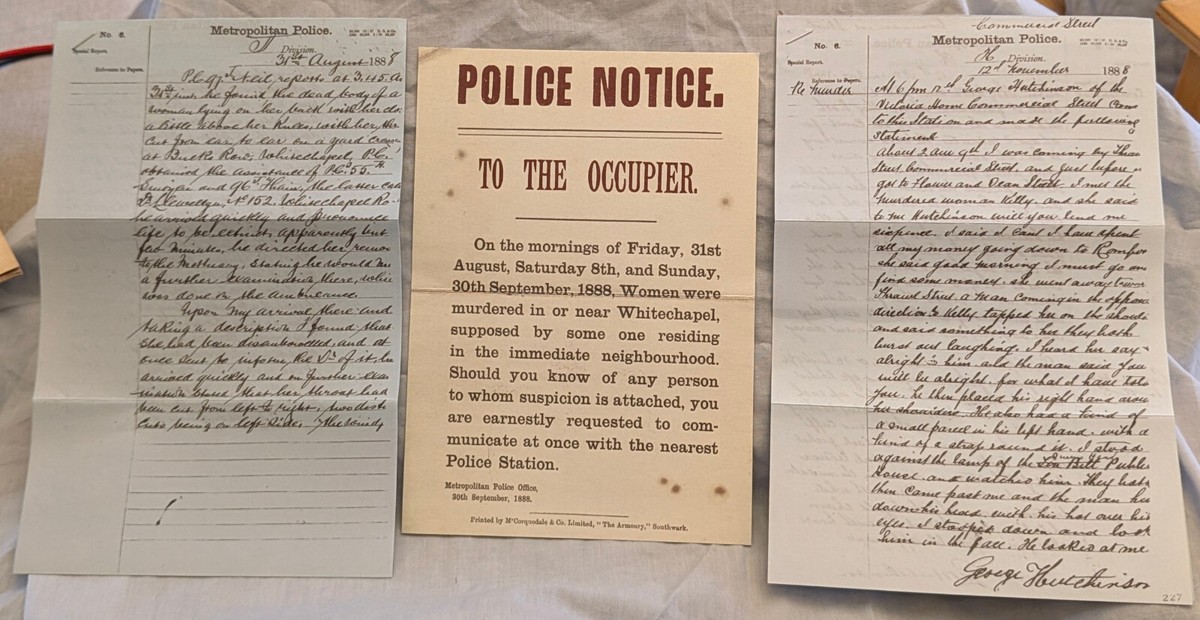 No. 6.
Metropolitan Police.
Special Report.
Division.
Reference to Papers.
31st August 1888
P.C. 97J Neil reports at 3.45. am
31st inst he found the dead body of a
woman lying on her back with her clo
a little above her knees, with her thr
cut from ear to ear on a yard cross
at Bucks Row, Whitechapel, P.C.
obtained the assistance of P.C.s 55.H
and 96J Thain, the latter cal
Dr. Llewellyn, No 152. Whitechapel Ro
he arrived quickly and pronounce
life to be extinct, apparently but
few minutes, he directed her remo
to the Mortuary, stating he would ma
a further examination there, whic
was done on the ambulance.
Upon my arrival there and
taking a description I found that
she had been disembowelled, and at
once sent to inform the Dr. of it, he
arrived quickly and on further exa
stated that her throat had
been cut from left to right, two dist
cuts being on left side. The wind
POLICE NOTICE.
TO THE OCCUPIER.
On the mornings of Friday, 31st
August, Saturday 8th, and Sunday,
30th September, 1888, Women were
murdered in or near Whitechapel,
supposed by some one residing
in the immediate neighbourhood.
Should you know of any person
to whom suspicion is attached, you
are earnestly requested to com-
municate at once with the nearest
Police Station.
Metropolitan Police Office,
30th September, 1888.
Printed by M'Corquodale & Co. Limited, "The Armoury," Southwark.
Commercial Street
No. 6.
Metropolitan Police.
Special Report.
H Division.
Reference to Papers.
12th November 1888
Re Murder
At 6 pm 12th George Hutchinson of the
Victoria Home Commercial Street came
to this Station and made the following
Statement
About 2 am 9th I was coming by Thra
Street Commercial Street, and just before I
got to Flower and Dean Street I met the
murdered woman Kelly. and she said
to me Hutchinson will you lend me
sixpence. I said I cant I have spent
all my money going down to Romfor
she said good morning I must go an
find some money. she went away towar
Thrawl Street. a man coming in the opposi
direction to Kelly tapped her on the should
and said something to her they both
burst out laughing. I heard her say
alright to him. and the man said you
will be alright. for what I have tol
you. he then placed his right hand arou
her shoulders. He also had a kind of
a small parcel in his left hand. with a
kind of a strap round it. I stood
against the lamp of the Ten Bell Queens Head Public
House. and watched him. They both
then came past me and the man hu
down his head. with his hat over his
eyes. I stooped down and look
him in the face. He looked at me
George Hutchinson
227